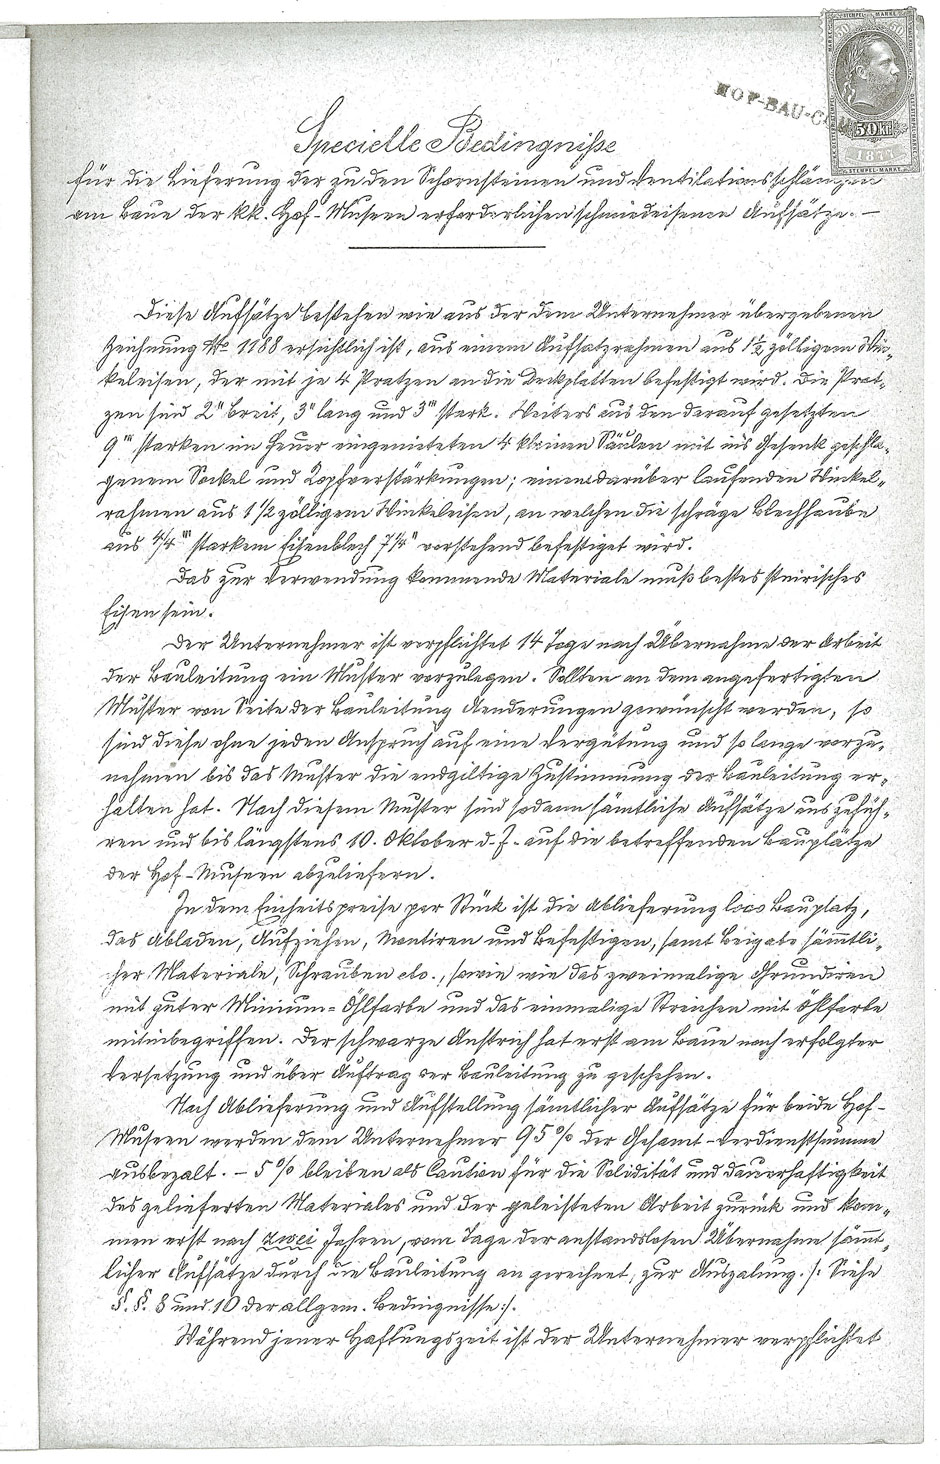 HOF-BAU-CO
STEMPEL MARKE
50 Kr.
1877
Specielle Bedingnisse
für die Lieferung der zu den Schornsteinen und Ventilationsschläuchen
am Baue der kk. Hof-Museen erforderlichen schmiedeisernen Aufsätze. —
Diese Aufsätze bestehen wie aus der dem Unternehmer übergebenen
Zeichnung No 1188 ersichtlich ist, aus einem Aufsatzrahmen aus 1½ zölligem Win-
keleisen, der mit je 4 Pratzen an die Deckplatten befestigt wird. Die Prat-
zen sind 2" breit, 3" lang und 3''' stark. Weiters aus den darauf gesetzten
9''' starken im Feuer eingenieteten 4 kleinen Säulen mit ins Gesenk geschla-
genem Sockel und Kopfverstärkungen; einem darüber laufenden Winkel-
rahmen aus 1 1/2 zölligem Winkeleisen, an welchen die schräge Blechhaube
aus 4/4''' starkem Eisenblech 7¼" vorstehend befestiget wird.
Das zur Verwendung kommende Materiale muß bestes steirisches
Eisen sein.
Der Unternehmer ist verpflichtet 14 Tage nach Übernahme der Arbeit
der Bauleitung ein Muster vorzulegen. Sollten an dem angefertigten
Muster von Seite der Bauleitung Aenderungen gewünscht werden, so
sind diese ohne jeden Anspruch auf eine Vergütung und so lange vorzu-
nehmen bis das Muster die endgiltige Zustimmung der Bauleitung er-
halten hat. Nach diesem Muster sind sodann sämtliche Aufsätze auszufüh-
ren und bis längstens 10. Oktober d. J. auf die betreffenden Bauplätze
der Hof-Museen abzuliefern.
In dem Einheitspreise per Stück ist die Ablieferung loco Bauplatz,
das Abladen, Aufziehen, Montiren und Befestigen, samt Beigabe sämmtli-
cher Materiale, Schrauben etc., sowie wie das zweimalige Grundiren
mit guter Minium-Öhlfarbe und das einmalige Streichen mit Öhlfarbe
mitinbegriffen. Der schwarze Anstrich hat erst am Baue nach erfolgter
Versetzung und über Auftrag der Bauleitung zu geschehen.
Nach Ablieferung und Aufstellung sämtlicher Aufsätze für beide Hof-
Museen werden dem Unternehmer 95% der Gesamt-Verdienstsumme
ausbezalt. – 5% bleiben als Caution für die Solidität und Dauerhaftigkeit
des gelieferten Materiales und der geleisteten Arbeit zurück und kom-
men erst nach zwei Jahren, vom Tage der anstandslosen Übernahme sämmt-
licher Aufsätze durch die Bauleitung an gerechnet, zur Auszalung. /: Siehe
§. §. 8 und 10 der allgem. Bedingnisse :/.
Während jener Haftungszeit ist der Unternehmer verpflichtet